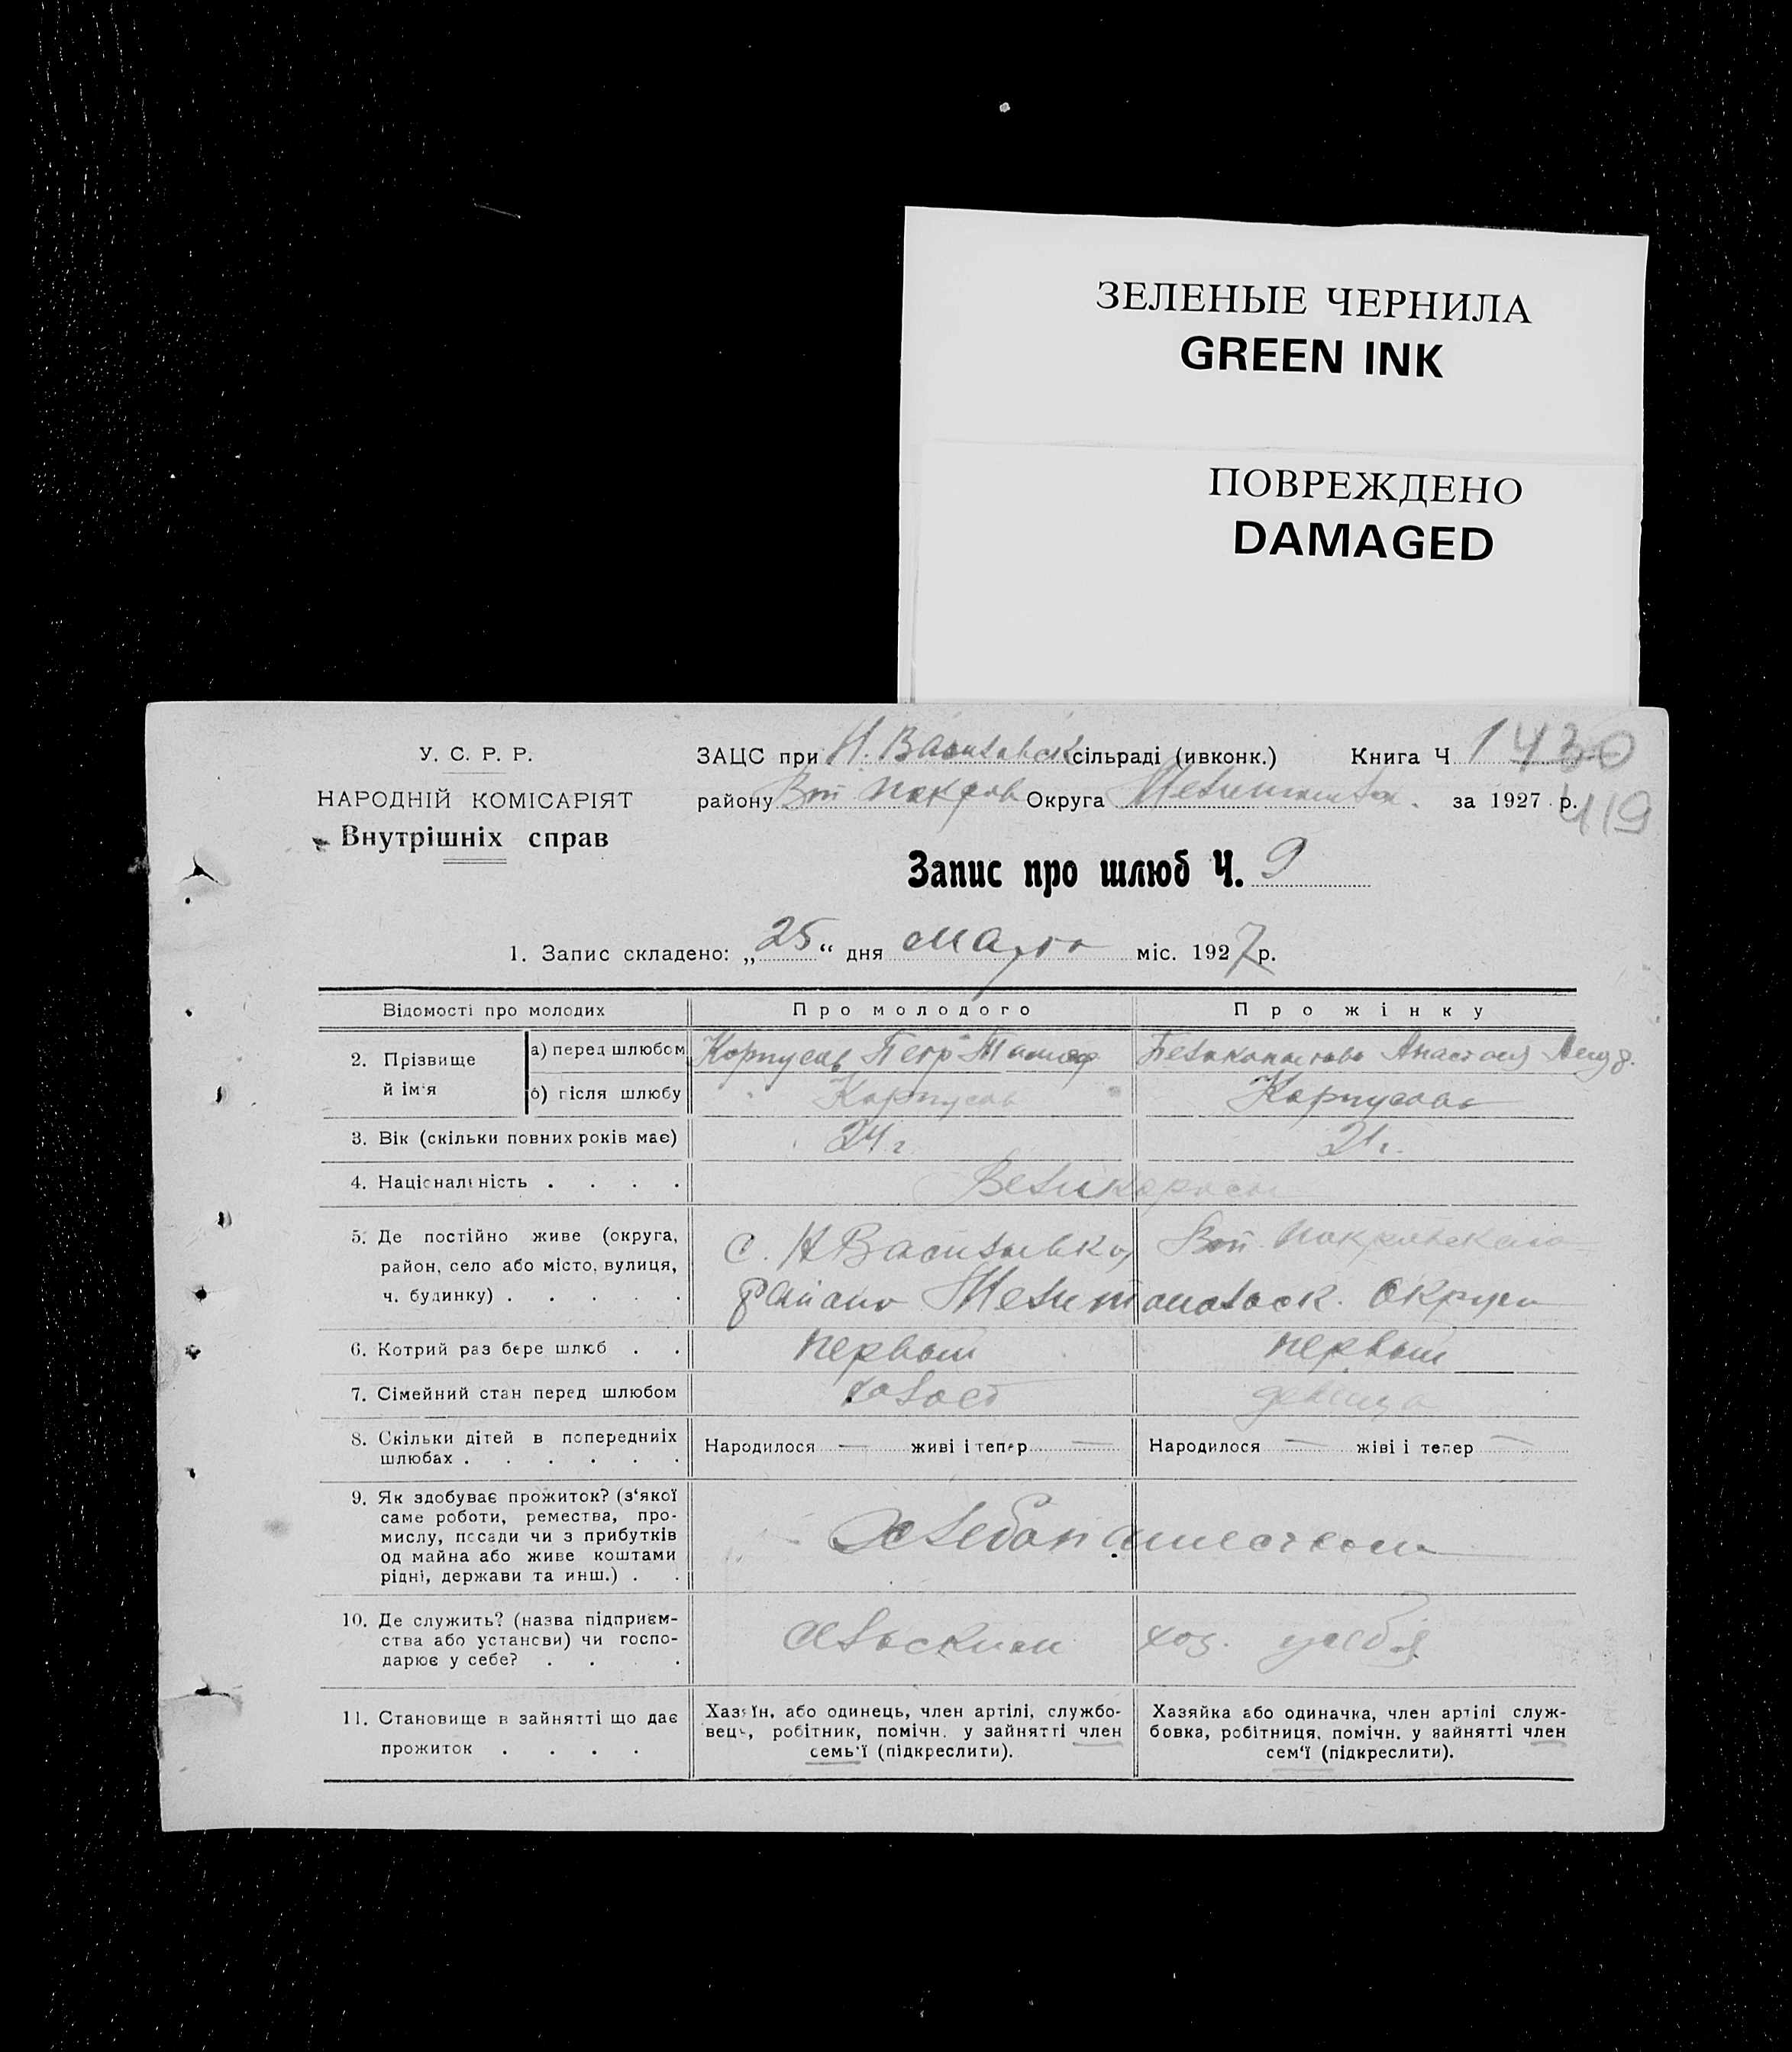 ЗЕЛЕНЫЕ ЧЕРНИЛА
GREEN INK
ПОВРЕЖДЕНО
DAMAGED
У. С. Р. Р.
НАРОДНІЙ КОМІСАРІЯТ
Внутрішніх справ
ЗАЦС при Н. Васильевск сільраді (ивконк.) Книга Ч 1430
району Округа за 1927 р.
419
Запис про шлюб Ч. 9
1. Запис складено: „25“ дня марта міс. 1927 р.
Відомості про молодих Про молодого Про жінку
2. Прізвище й ім'я
а) перед шлюбом Корпусов Петр Тимоф Анастасия
б) після шлюбу Корпусов Корпусова
3. Вік (скільки повних років має) 24 г. 21 г.
4. Національність . . . . Великоросы
5. Де постійно живе (округа, район, село або місто, вулиця, ч. будинку) . . . . .
с. Н Васильевка, Вп Покровского
района Мелитопольск. Округи
6. Котрий раз бере шлюб . . первый первый
7. Сімейний стан перед шлюбом холост девица
8. Скільки дітей в попередниіх шлюбах . . . . . .
Народилося — живі і тепер — Народилося — жіві і тепер —
9. Як здобуває прожиток? (з'якої саме роботи, ремества, промислу, посади чи з прибутків од майна або живе коштами рідні, держави та инш.) . .
Хлебопашеством
10. Де служить? (назва підприємства або установи) чи господарює у себе? . . .
сельским хоз. у себя
11. Становище в зайнятті що дає прожиток . . . .
Хазяїн, або одинець, член артілі, службовець, робітник, помічн. у зайнятті член семь'ї (підкреслити).
Хазяйка або одиначка, член артілі службовка, робітниця, помічн. у зайнятті член сем'ї (підкреслити).